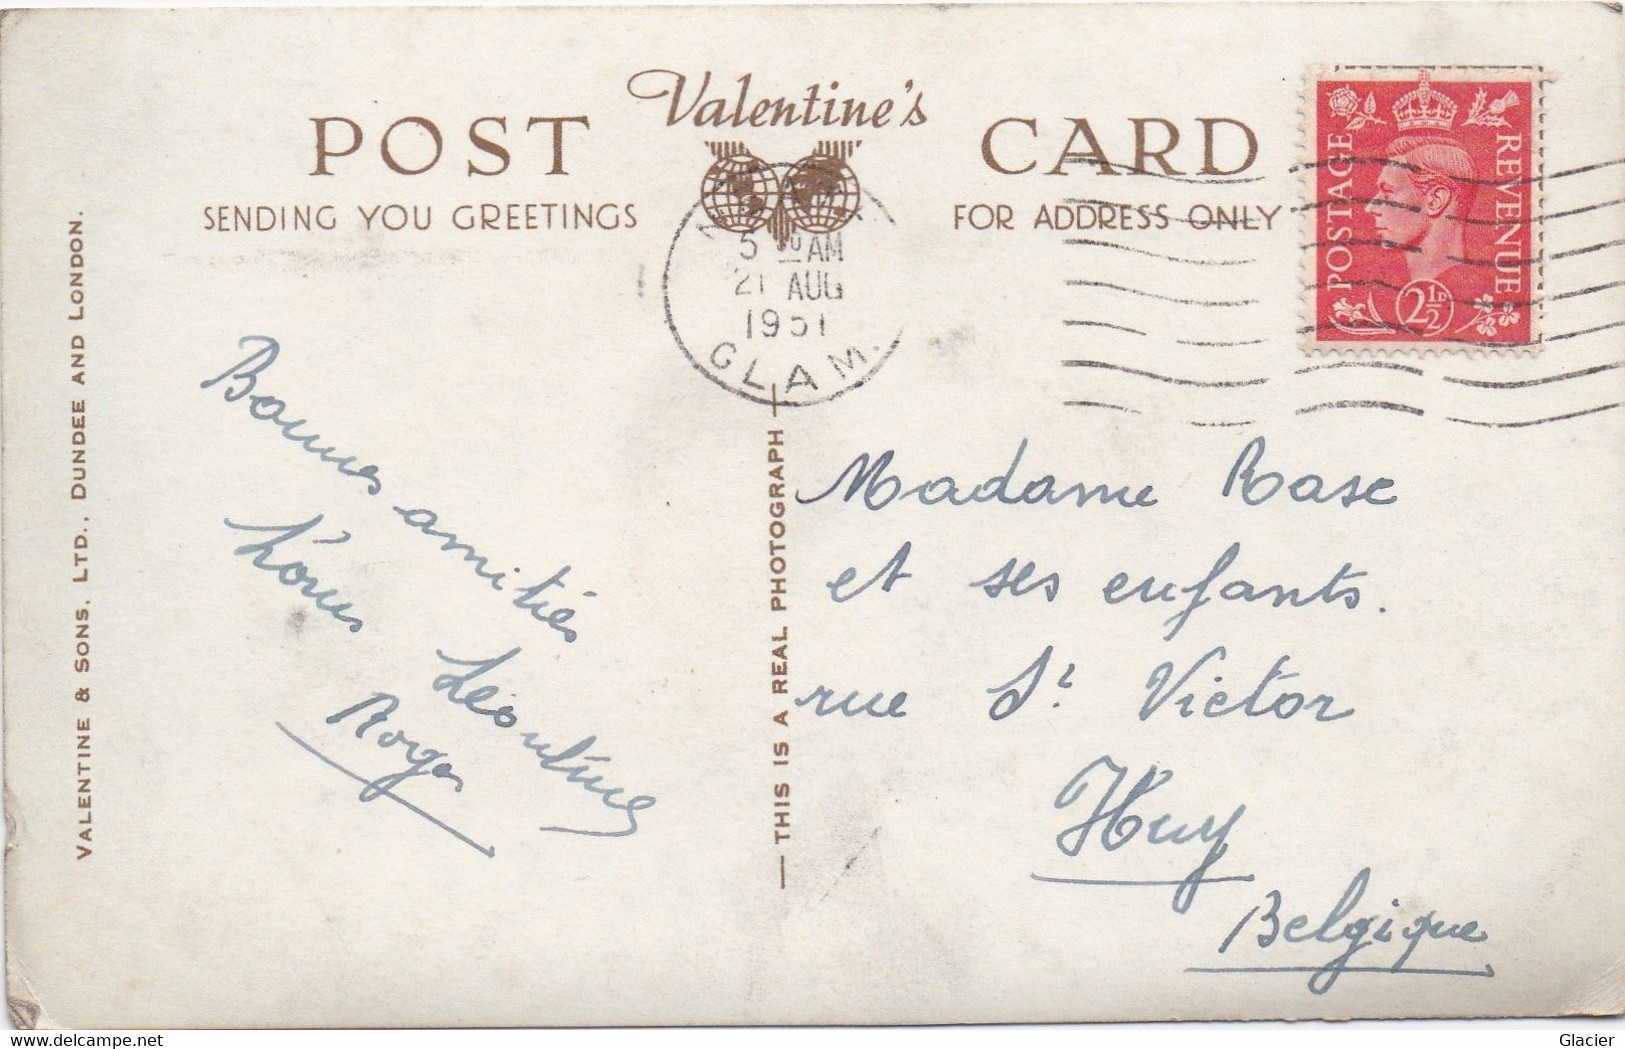 Valentine's
POST CARD
SENDING YOU GREETINGS
FOR ADDRESS ONLY
POSTAGE
REVENUE
2½D
5 AM
21 AUG
1951
GLAM.
VALENTINE & SONS. LTD., DUNDEE AND LONDON.
THIS IS A REAL PHOTOGRAPH
Bonnes amitiés
Léontine
Roger
Madame Rase
et ses enfants.
rue St. Victor
Huy
Belgique
Glacier